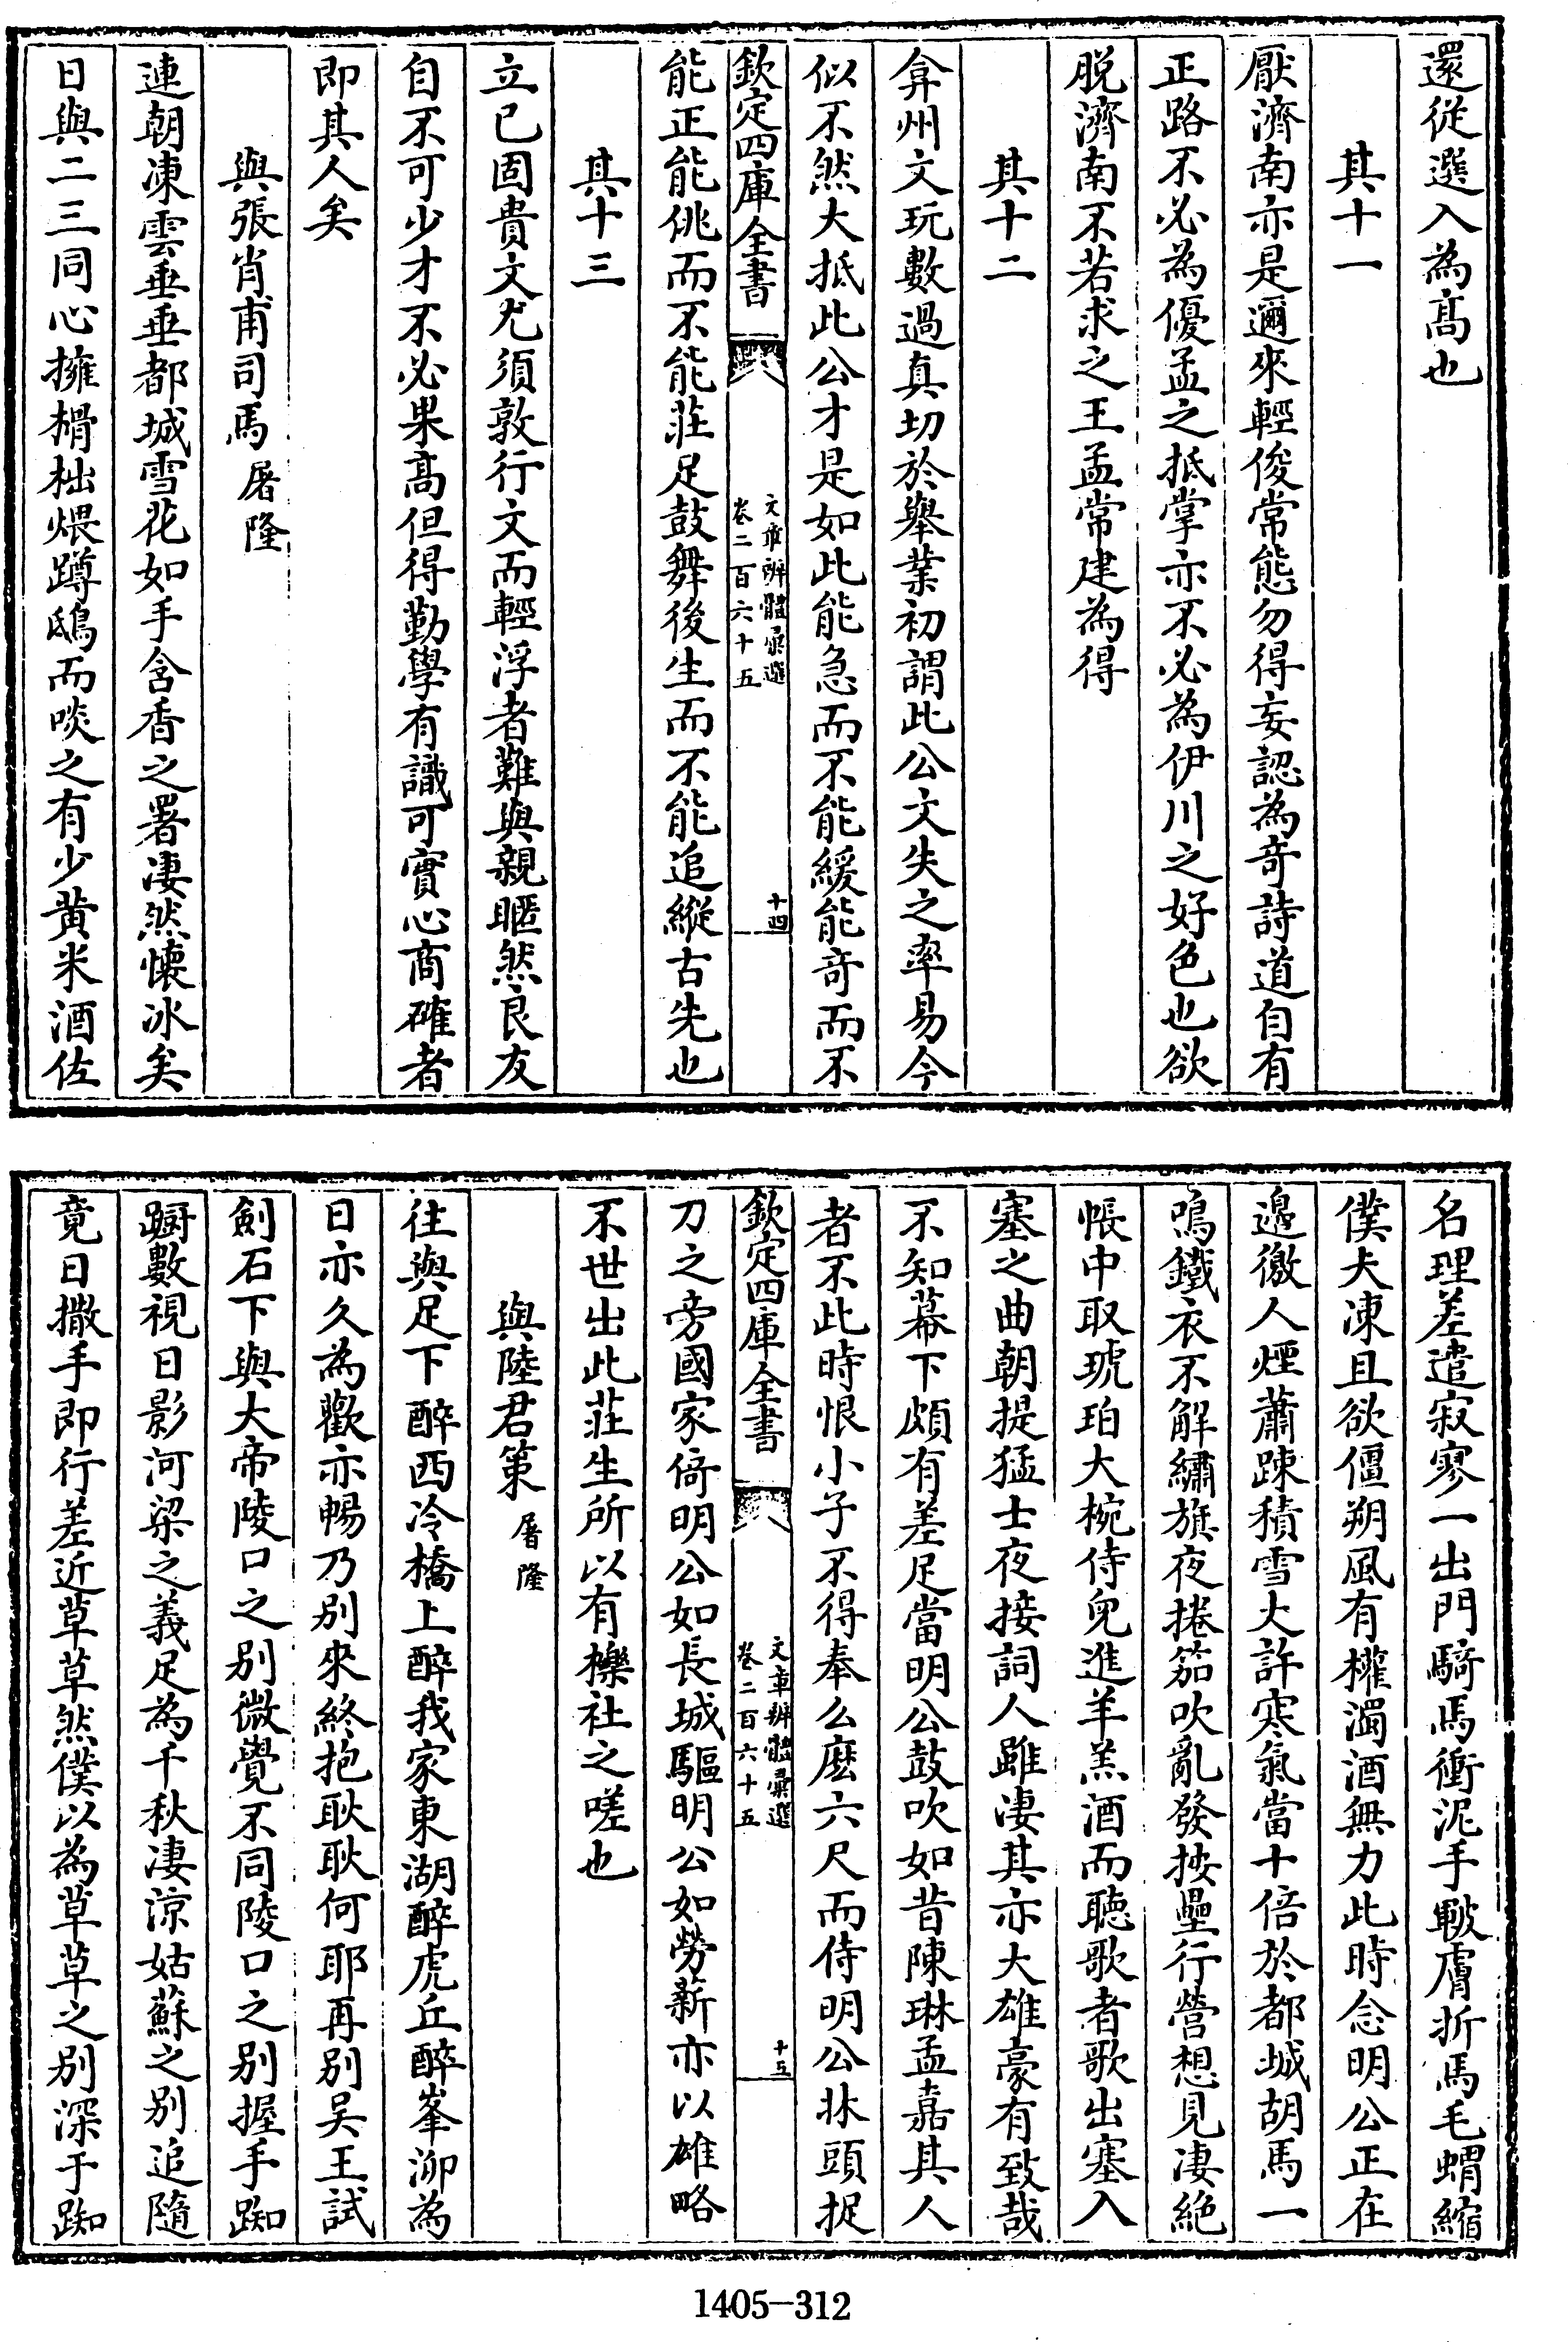 還從選入為髙也
其十一
厭濟南亦是邇來輕俊常態勿得妄認為竒詩道自有
正路不必為優孟之抵掌亦不必為伊川之好色也欲
脱濟南不若求之王孟常建為得
其十二
弇州文玩數過真切於舉業初謂此公文失之率易今
似不然大抵此公才是如此能急而不能緩能竒而不
欽定四庫全書
文章辨體彙選
卷二百六十五
十四
能正能佻而不能莊足鼓舞後生而不能追縱古先也
其十三
立已固貴文尤須敦行文而輕浮者難與親暱然良友
自不可少才不必果髙但得勤學有識可實心商確者
即其人矣
與張肖甫司馬 屠隆
連朝凍雲垂垂都城雪花如手含香之署凄然懷冰矣
日與二三同心擁榾柮煨蹲鴟而啖之有少黄米酒佐
名理差遣寂寥一出門騎馬衝泥手皸膚折馬毛蝟縮
僕夫凍且欲僵朔風有權濁酒無力此時念明公正在
邉徼人煙蕭踈積雪大許寒氣當十倍於都城胡馬一
鳴鐵衣不解繡旗夜捲笳吹亂發按壘行營想見凄絶
帳中取琥珀大椀侍兒進羊羔酒而聽歌者歌出塞入
塞之曲朝提猛士夜接詞人雖凄其亦大雄豪有致哉
不知幕下頗有差足當明公鼓吹如昔陳琳孟嘉其人
者不此時恨小子不得奉么麽六尺而侍明公牀頭捉
欽定四庫全書
文章辨體彙選
卷二百六十五
十五
刀之旁國家倚明公如長城驅明公如勞薪亦以雄略
不世出此莊生所以有櫟社之嗟也
與陸君策 屠隆
往與足下醉西冷橋上醉我家東湖醉虎丘醉峯泖為
日亦久為歡亦暢乃别來終抱耿耿何耶再别吴王試
劍石下與大帝陵口之别微覺不同陵口之别握手踟
蹰數視日影河梁之義足為千秋凄凉姑蘇之别追隨
竟日撒手即行差近草草然僕以為草草之别深于踟
1405-312